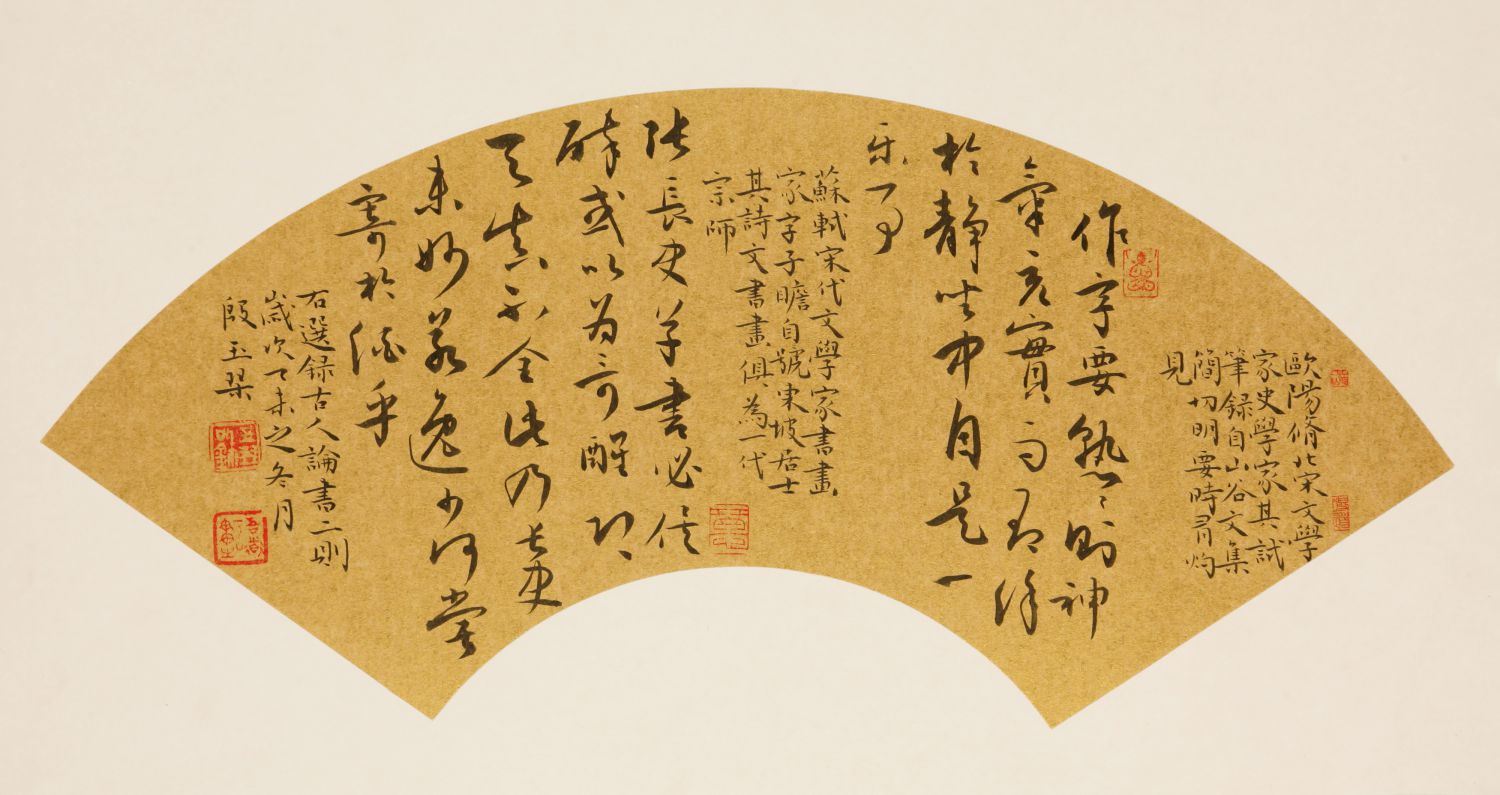 歐陽脩北宋文學
家史學家其試
筆錄自山谷文集
簡切明要時有灼
見
作字要熟〻則神
氣完實而有餘
於静坐中自是一
乐事
蘇軾宋代文學家書畫
家字子瞻自號東坡居士
其詩文書畫俱為一代
宗師
张長史草書必俟
醉或以为奇醒即
天真不全此乃长史
未妙若逸少何嘗
寄於酒乎
右選録古人論書二則
歲次乙未之冬月
殷玉